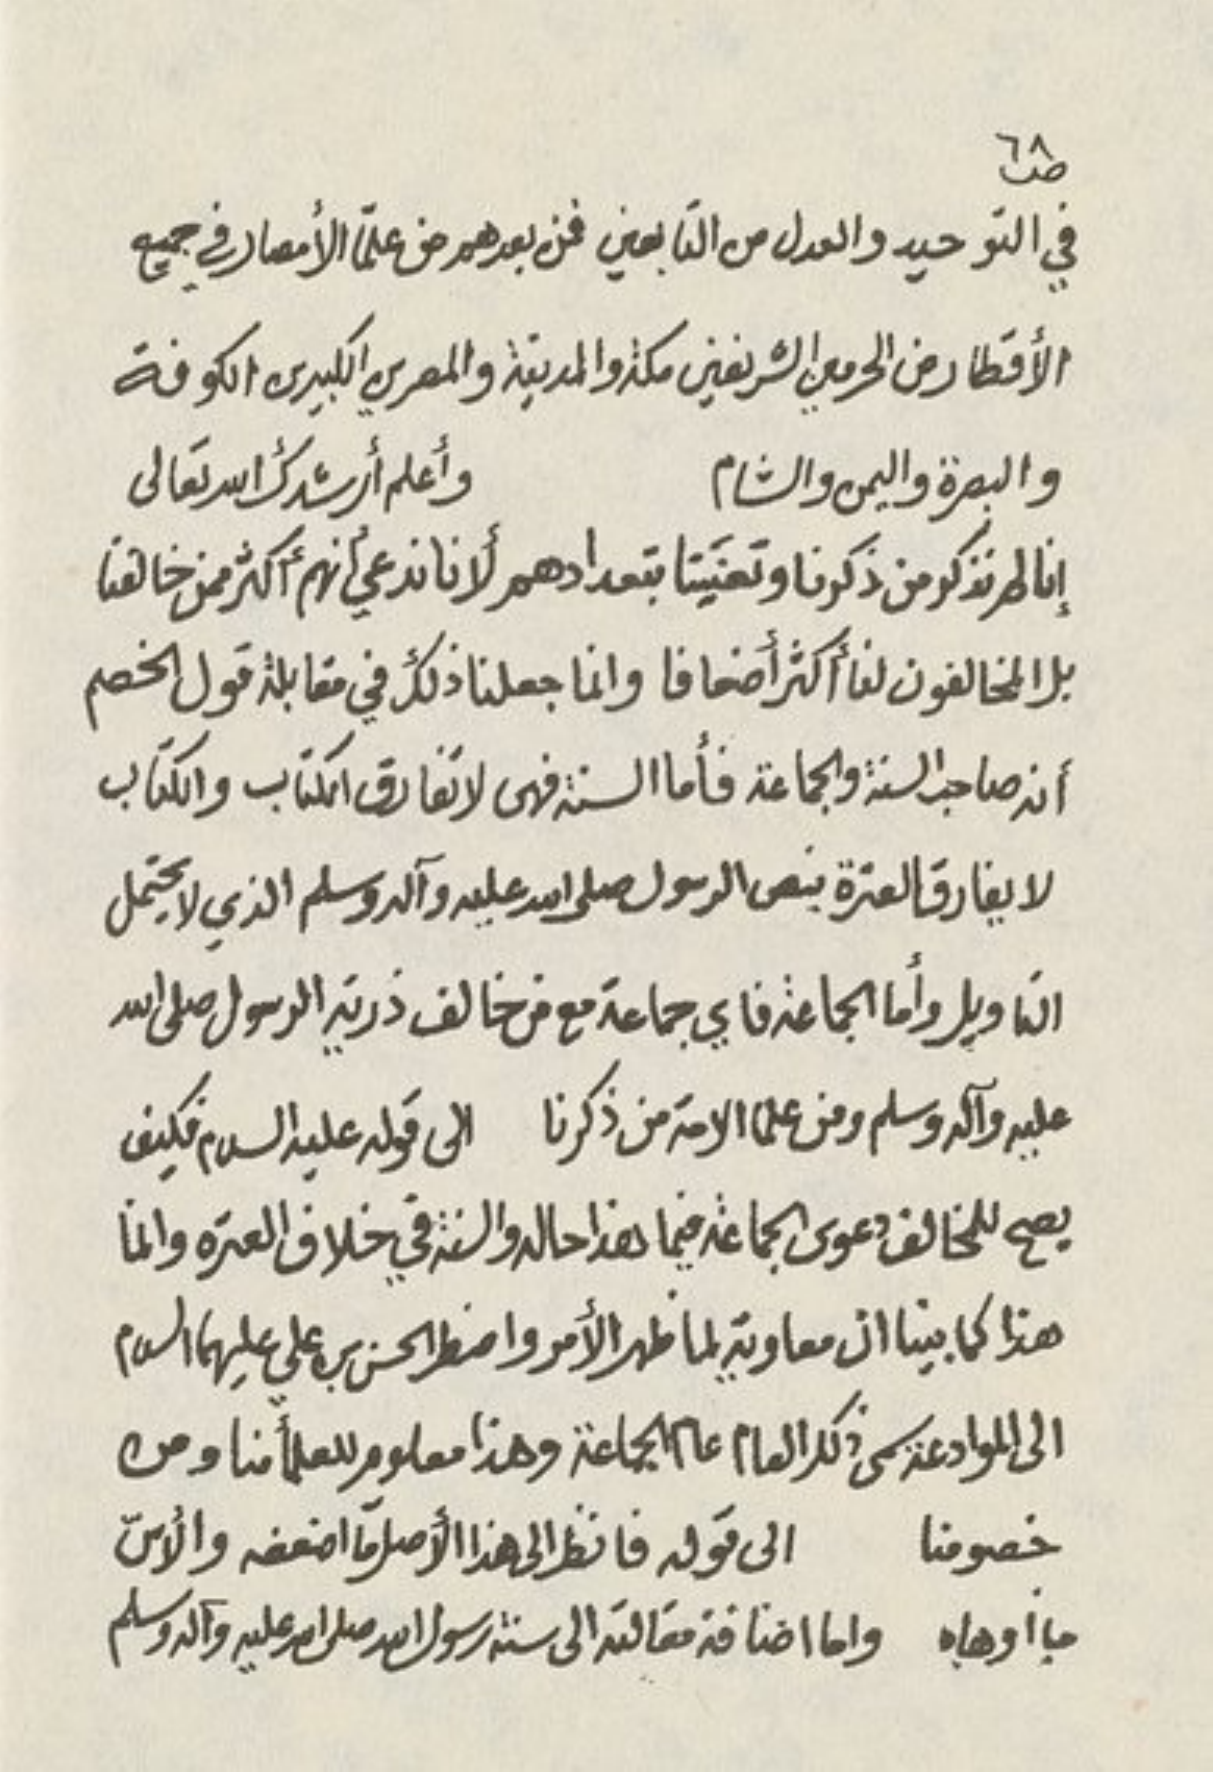 ٦٨
صـ
في التوحيد والعدل من التابعين فمن بعدهم من علمآ الأمصار في جميع
الأقطار من الحرمين الشريفين مكة والمدينة والمصرين الكبيرين الكوفة
والبصرة واليمن والشام وأعلم أرشدك الله تعالى
إنا لم نذكر من ذكرنا وتعنيتا بتعدادهم لأنا ندعي أنهم أكثر ممن خالفنا
بل المخالفون لنا أكثر أضعافا وانما جعلنا ذلك في مقابلة قول الخصم
أنه صاحب السنة والجماعة فأما السنة فهي لا تفارق الكتاب والكتاب
لا يفارق العترة بنص الرسول صلى الله عليه وآله وسلم الذي لا يحتمل
التاويل وأما الجماعة فاي جماعة مع من خالف ذرية الرسول صلى الله
عليه وآله وسلم ومن علما الامة من ذكرنا الى قوله عليه السلام فكيف
يصح للمخالف دعوى الجماعة فيما هذا حاله والسنة في خلاف العترة وانما
هذا كما بينا ان معاوية لما ظهر الأمر واضطر الحسن بن علي عليهما السلام
الى الموادعة سمى ذلك العام عام الجماعة وهذا معلوم للعلمأ منا ومن
خصومنا الى قوله فانظر الى هذا الأصل مآ اضعفه والأس
ما أوهاه واما اضافة مقالته الى سنة رسول الله صلى الله عليه وآله وسلم